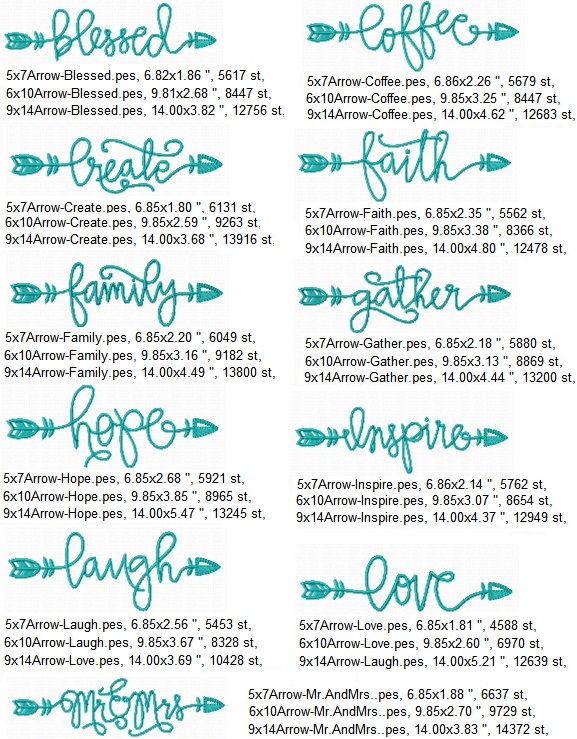 blessed
5x7Arrow-Blessed.pes, 6.82x1.86 ", 5617 st,
6x10Arrow-Blessed.pes, 9.81x2.68 ", 8447 st,
9x14Arrow-Blessed.pes, 14.00x3.82 ", 12756 st,
coffee
5x7Arrow-Coffee.pes, 6.86x2.26 ", 5679 st,
6x10Arrow-Coffee.pes, 9.85x3.25 ", 8447 st,
9x14Arrow-Coffee.pes, 14.00x4.62 ", 12683 st,
create
5x7Arrow-Create.pes, 6.85x1.80 ", 6131 st,
6x10Arrow-Create.pes, 9.85x2.59 ", 9263 st,
9x14Arrow-Create.pes, 14.00x3.68 ", 13916 st,
faith
5x7Arrow-Faith.pes, 6.85x2.35 ", 5562 st,
6x10Arrow-Faith.pes, 9.85x3.38 ", 8366 st,
9x14Arrow-Faith.pes, 14.00x4.80 ", 12478 st,
family
5x7Arrow-Family.pes, 6.85x2.20 ", 6049 st,
6x10Arrow-Family.pes, 9.85x3.16 ", 9182 st,
9x14Arrow-Family.pes, 14.00x4.49 ", 13800 st,
gather
5x7Arrow-Gather.pes, 6.85x2.18 ", 5880 st,
6x10Arrow-Gather.pes, 9.85x3.13 ", 8869 st,
9x14Arrow-Gather.pes, 14.00x4.44 ", 13200 st,
hope
5x7Arrow-Hope.pes, 6.85x2.68 ", 5921 st,
6x10Arrow-Hope.pes, 9.85x3.85 ", 8965 st,
9x14Arrow-Hope.pes, 14.00x5.47 ", 13245 st,
Inspire
5x7Arrow-Inspire.pes, 6.86x2.14 ", 5762 st,
6x10Arrow-Inspire.pes, 9.85x3.07 ", 8654 st,
9x14Arrow-Inspire.pes, 14.00x4.37 ", 12949 st,
laugh
5x7Arrow-Laugh.pes, 6.85x2.56 ", 5453 st,
6x10Arrow-Laugh.pes, 9.85x3.67 ", 8328 st,
9x14Arrow-Love.pes, 14.00x3.69 ", 10428 st,
love
5x7Arrow-Love.pes, 6.85x1.81 ", 4588 st,
6x10Arrow-Love.pes, 9.85x2.60 ", 6970 st,
9x14Arrow-Laugh.pes, 14.00x5.21 ", 12639 st,
Mr & Mrs
5x7Arrow-Mr.AndMrs..pes, 6.85x1.88 ", 6637 st,
6x10Arrow-Mr.AndMrs..pes, 9.85x2.70 ", 9729 st,
9x14Arrow-Mr.AndMrs..pes, 14.00x3.83 ", 14372 st,